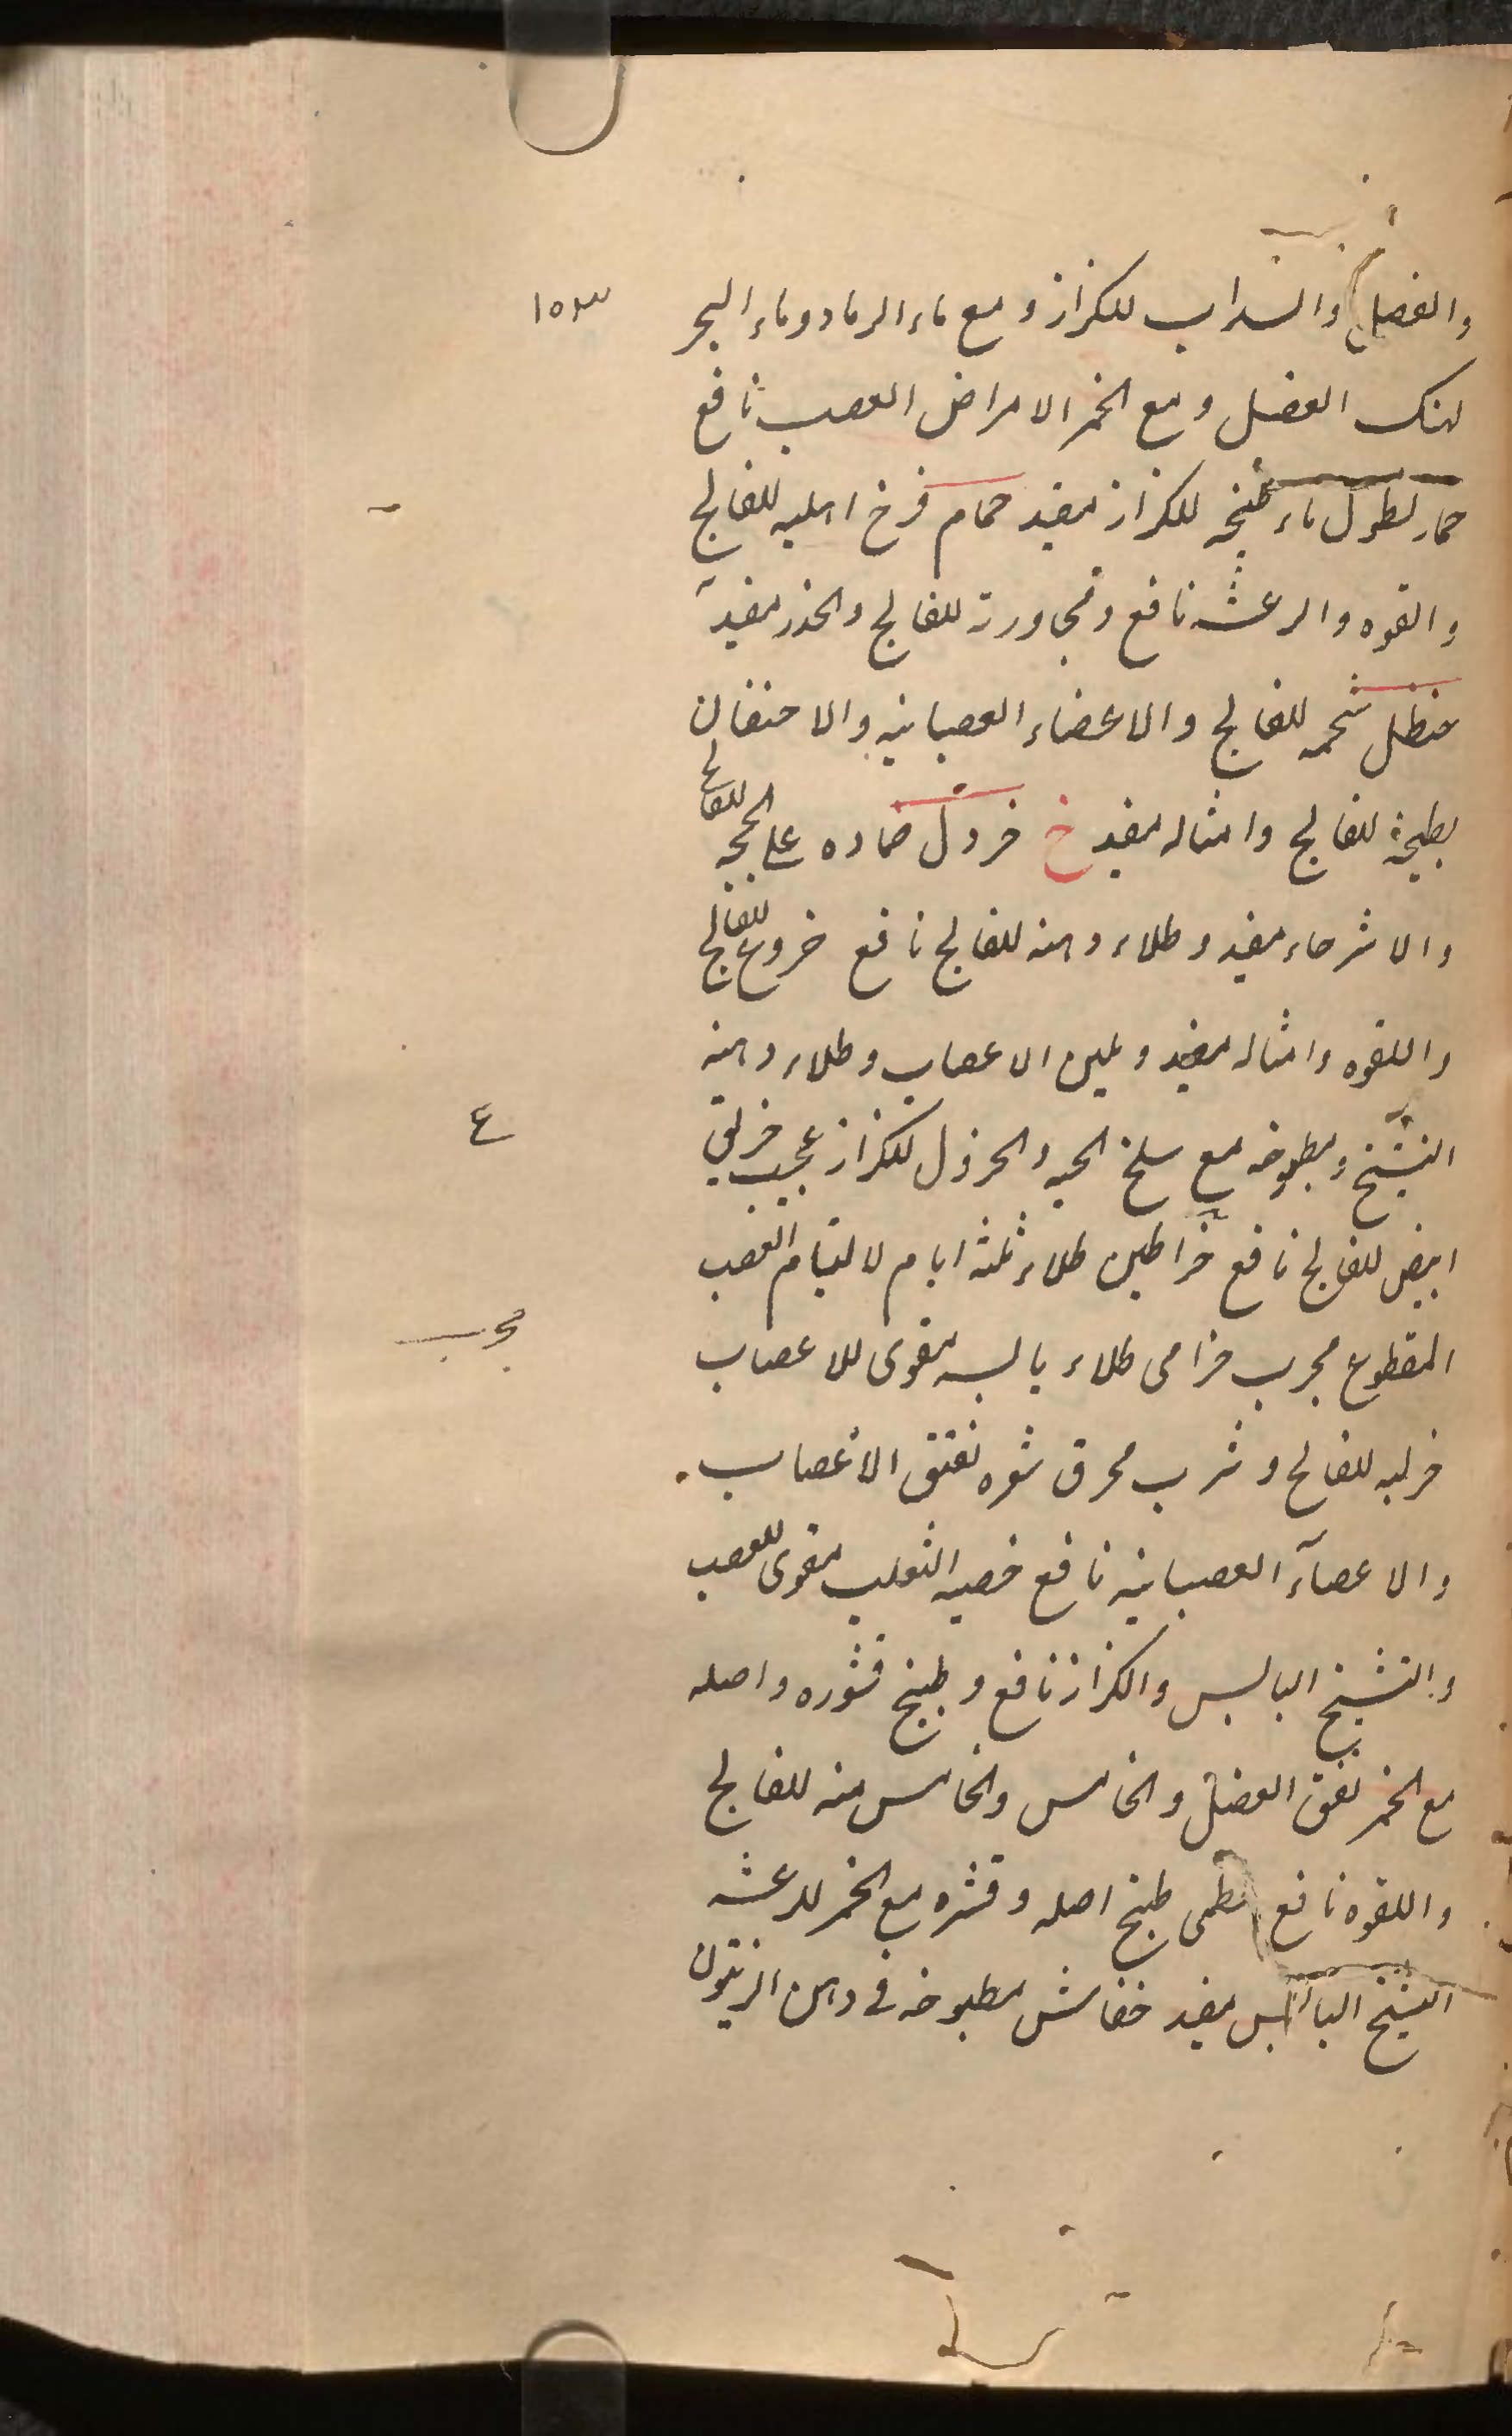 ١٥٣
والفضل والسداب للكزاز ومع ماء الرماد وماء البحر
لهتك العضل ومع الخمر الامراض العصب نافع
حمار نطول ماء طبخه للكزاز مفيد حمام فرخ اهليه للفالج
والقوه والرعشه نافع ومجاورة للفالج والخدر مفيد
حنظل شحمه للفالج والاعضاء العصبانيه والاحتقان
بطيخه للفالج وامثاله مفيد خ خردل ضماده على للفالج
والاسترخاء مفيد وطلاء دهنه للفالج نافع خروع للفالج
واللقوه وامثاله مفيد ويلين الاعصاب وطلاء دهنه
٤
التشنج ومطبوخه مع سلخ الحيه والخردل للكزاز عجيب خربق
ابيض للفالج نافع خراطين طلاء ثلثه ايام لالتيام العصب
مجرب
المقطوع مجرب خزامى طلاء يابسه مقوى للاعصاب
للفالج وشرب محرق الاعصاب
والاعصآء العصبانيه نافع خصيه الثعلب مقوى للعصب
والتشنج اليابس والكزاز نافع وطبخ قشوره واصله
مع الخمر العضل والخامس والخامس منه للفالج
واللقوه نافع خطمى طبخ اصله وقشره مع الخمر للرعشه
التشنج اليابس مفيد خفاش مطبوخه فى دهن الزيتون